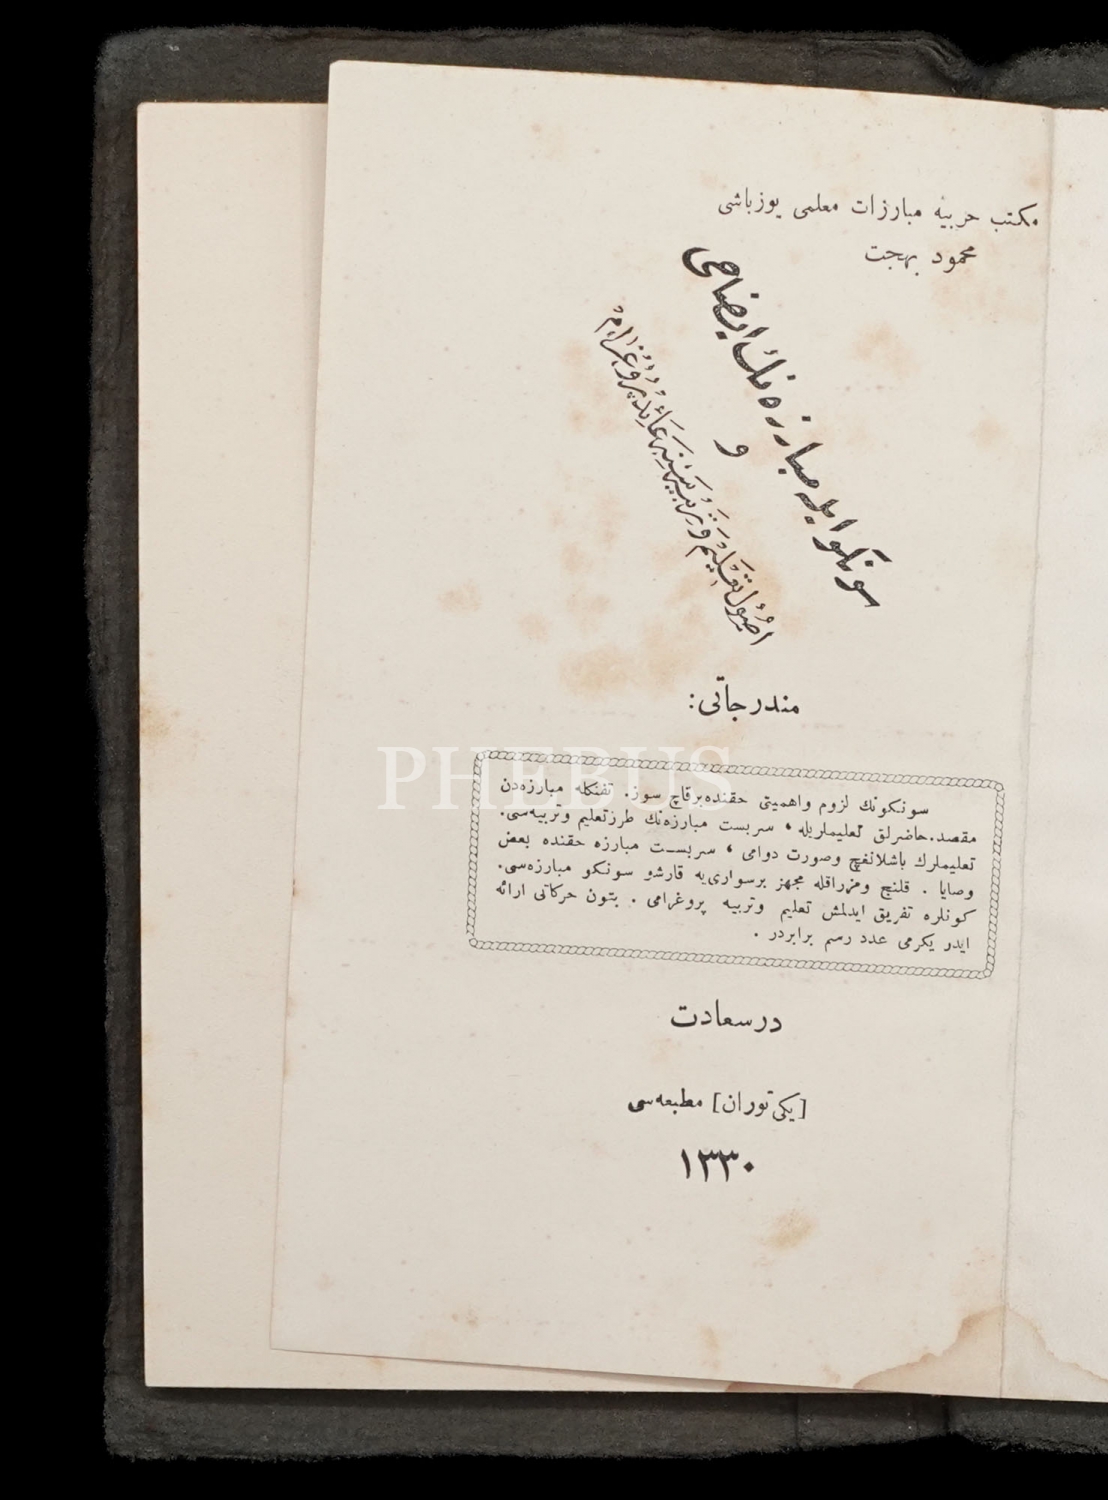 مكتب حربيه مبارزات معلمى يوزباشى
محمود بهجت
سونكو ايله مبارزه‌نك ايضاحى
و
اصول تعليم و تربيه‌سنه عائد پروغرام
مندرجاتى:
سونكونك لزوم واهميتى حقنده برقاچ سوز. تفنكله مبارزه‌دن
مقصد. حاضرلق تعليماريله ، سربست مبارزه‌نك طرز تعليم وتربيه‌سى.
تعليملرك باشلانغچ وصورت دوامى ، سربست مبارزه حقنده بعض
وصايا . قلنچ ومزراقله مجهز برسوارى‌يه قارشو سونكو مبارزه‌سى.
كونلره تفريق ايدلمش تعليم وتربيه پروغرامى . بتون حركاتى ارائه
ايدر يكرمى عدد رسم برابردر .
درسعادت
[يكى توران] مطبعه‌سى
١٣٣٠
PHEBUS